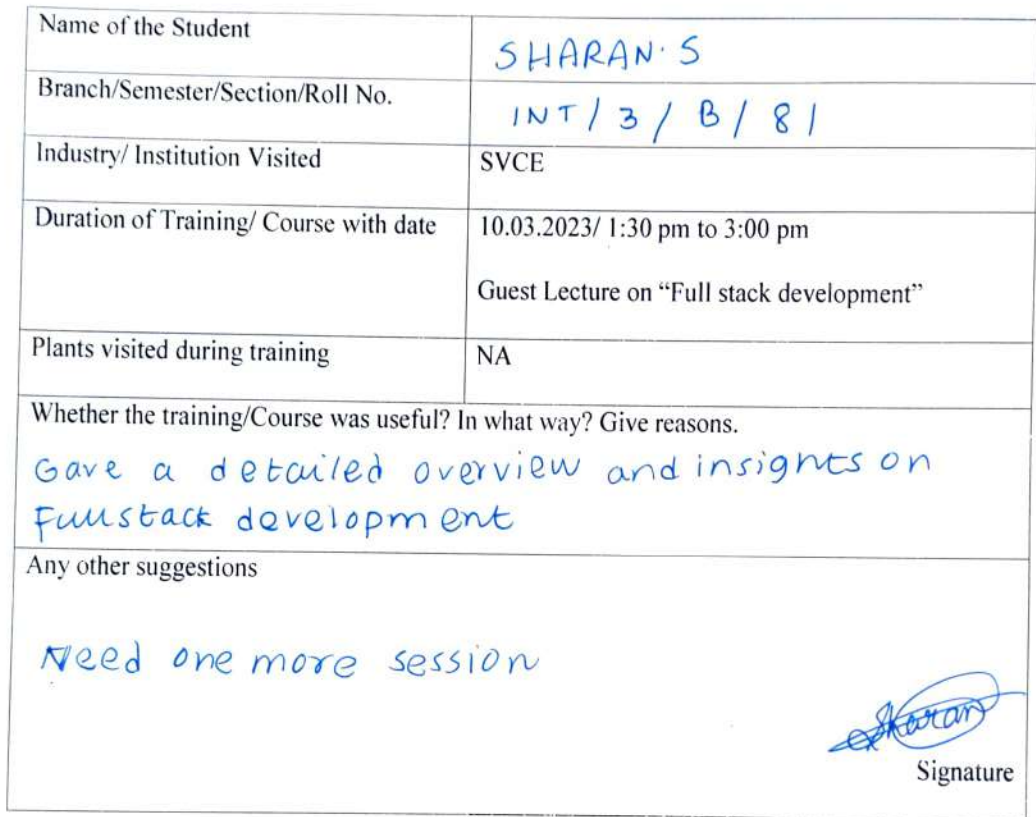 Name of the Student
SHARAN. S
Branch/Semester/Section/Roll No.
INT / 3 / B / 81
Industry/ Institution Visited
SVCE
Duration of Training/ Course with date
10.03.2023/ 1:30 pm to 3:00 pm
Guest Lecture on “Full stack development”
Plants visited during training
NA
Whether the training/Course was useful? In what way? Give reasons.
Gave a detailed overview and insights on
Fullstack development
Any other suggestions
Need one more session
Sharan
Signature